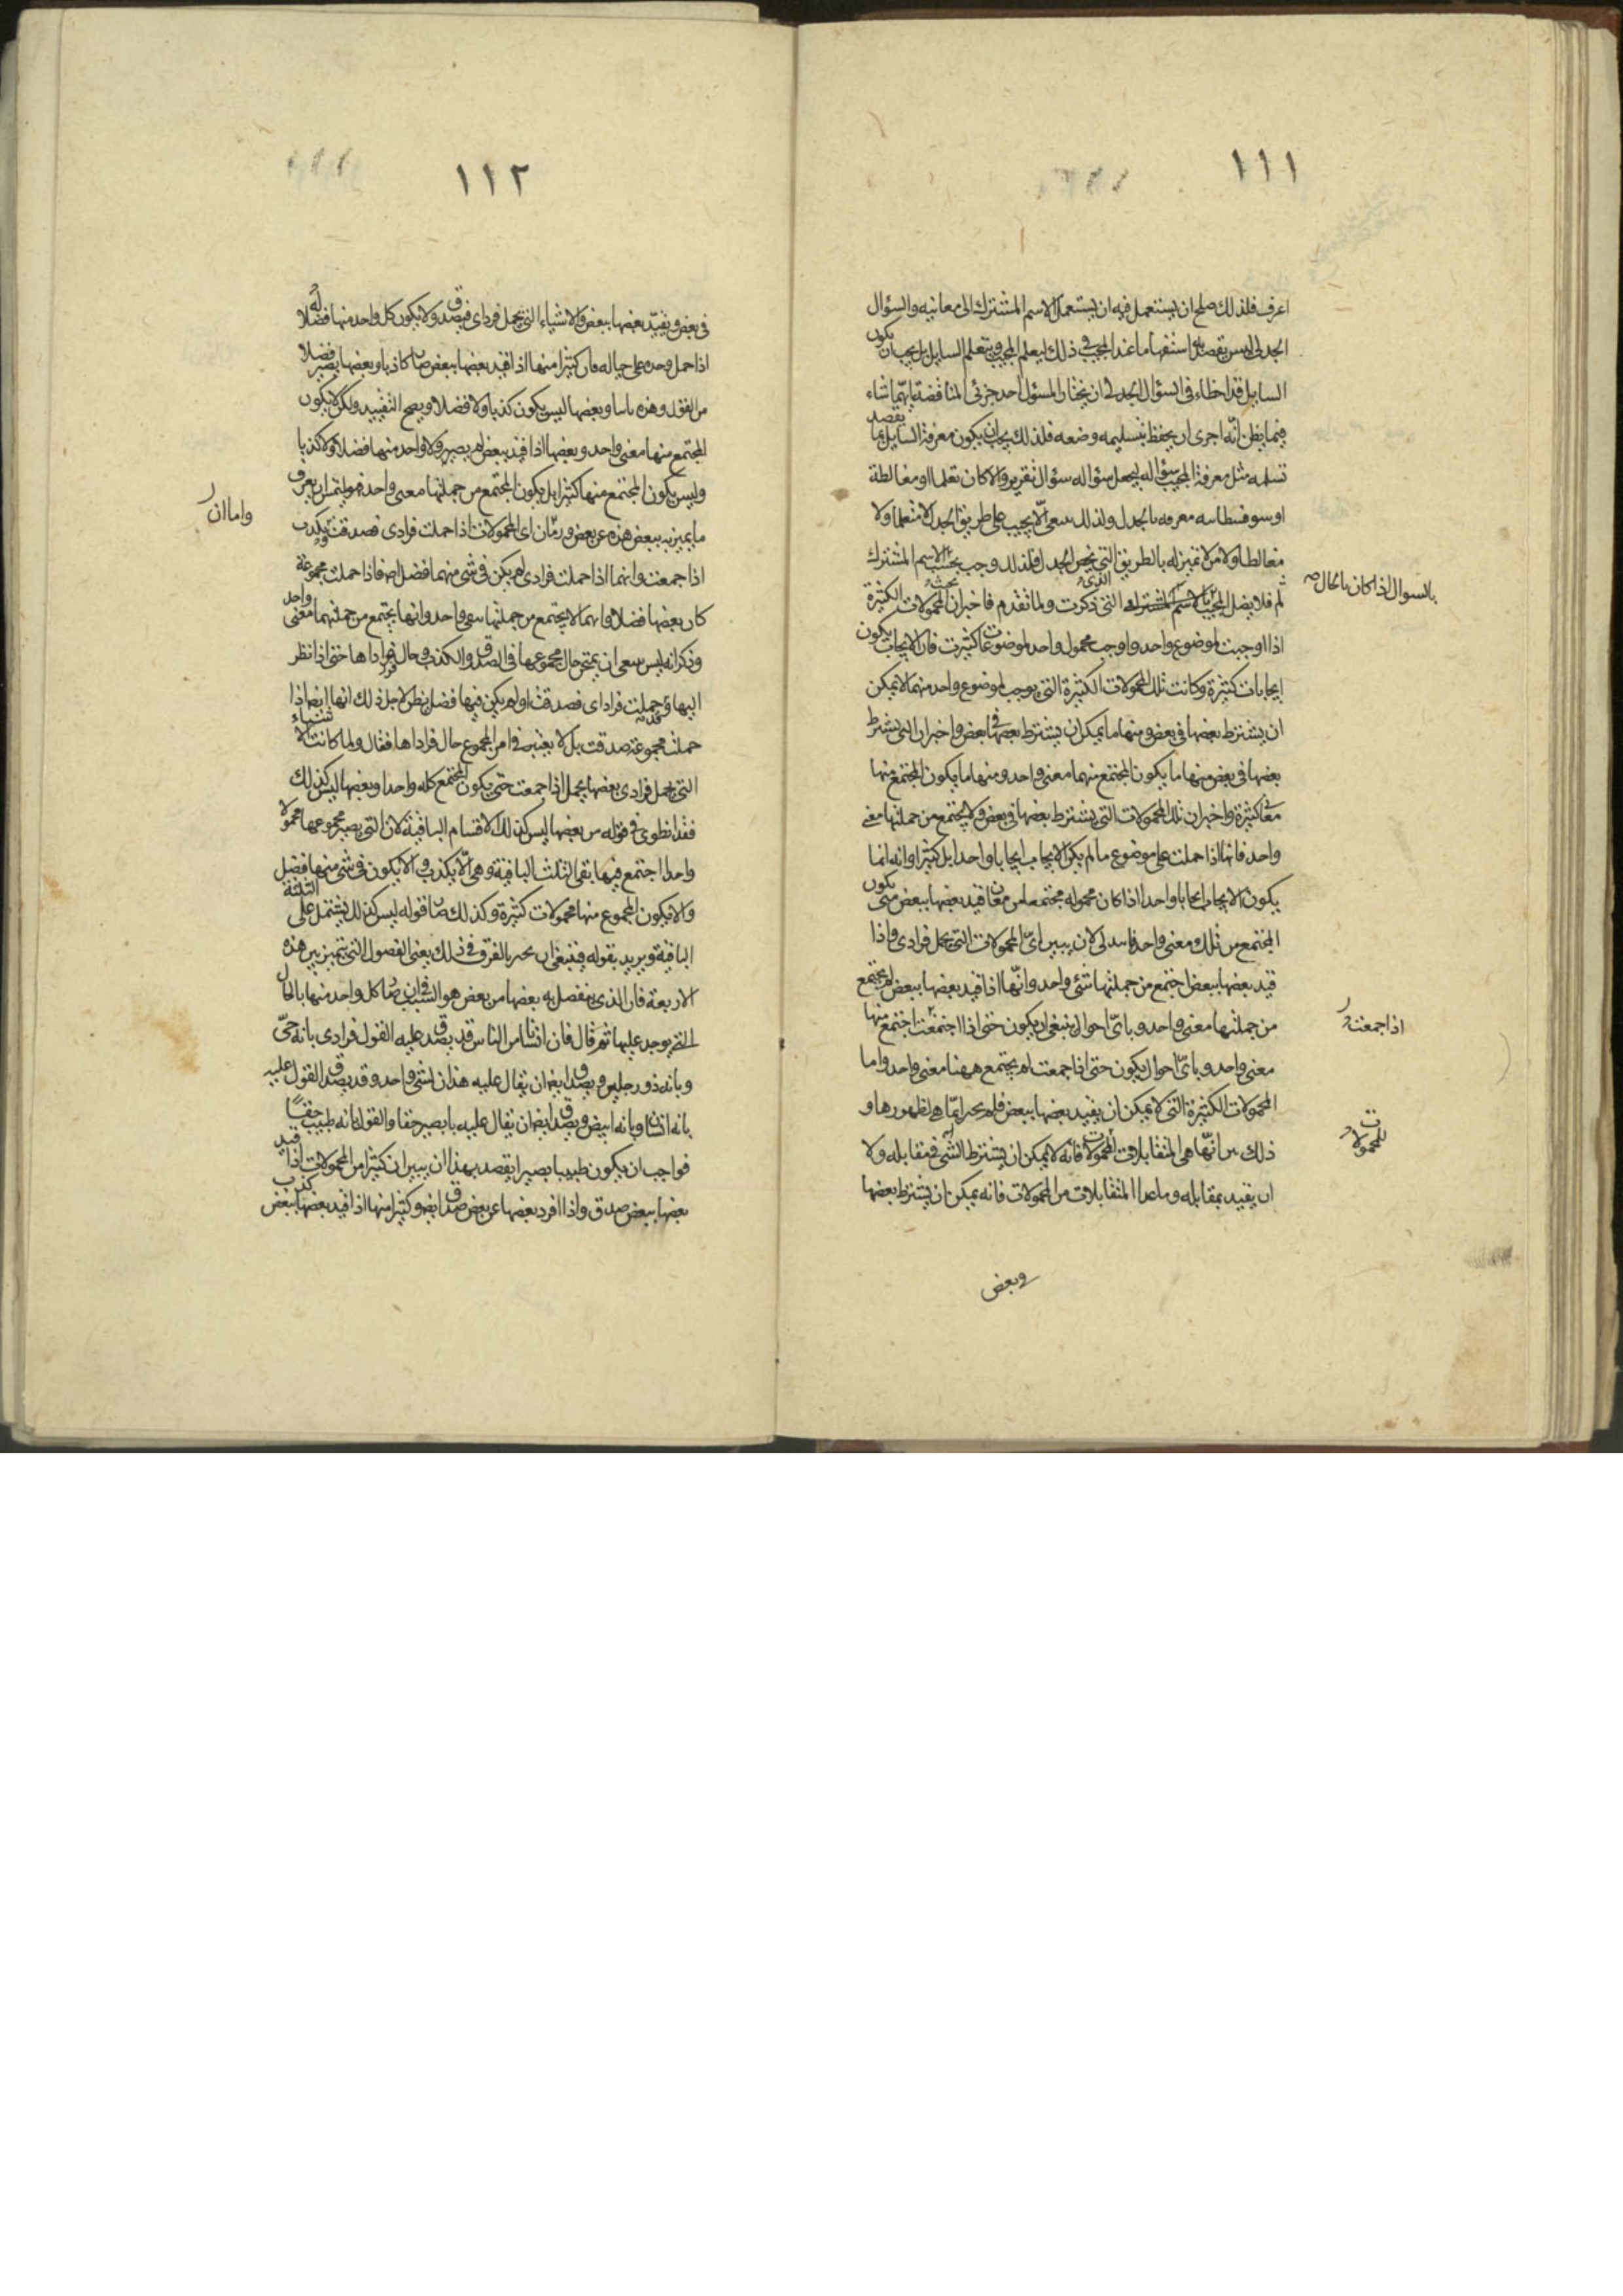 ١١١
اعرف فلذلك صلح ان يستعمل فيه ان يستعمل الاسم المشترك الى معانيه والسؤال
الجدلى ليس يقصد به استفهام ما عند المجيب فى ذلك ليعلم المجيب ويتعلم السايل بل يجب ان يكون
السايل قد اخطاء فى السؤال الجدلى ان يختار المسؤل احد جزئى المناقضة ايّهما شاء
فيما يظن انّه احرى ان يحفظ بتسليمه وضعه فلذلك يجب ان يكون معرفة السايل بما يقصد
تسلمه مثل معرفة المجيب سؤاله ليجعل سؤاله سؤال تقرير والا كان تعلما او مغالطة
او سوفسطاسه معرفه بالجدل ولذلك ينبغى الّا يجيب على طريق الجدل لا متعلما ولا
مغالطا ولا من لا تميز له بالطريق التى تخص الجدل فلذلك وجب بحسب الاسم المشترك
بالسوال اذا كان بالحال
ثم فلا يضل المجيب بالاسم المشترك التى ذكرت ولما تقدم فاخبر ان المحمولات الكثيرة
اذا اوجبت لموضوع واحد واوجب محمول واحد لموضوعات كثيرت فان الايجاب يكون
ايجابات كثيرة وكانت تلك المحمولات الكثيرة التى يوجب لموضوع واحد منها ما لا يمكن
ان يشترط بعضها فى بعض ومنها ما يمكن ان يشترط بعضها فى بعض واخبر ان التى يشترط
بعضها فى بعض منها ما يكون المجتمع منهما معنى واحد ومنها ما يكون المجتمع منها
معانى كثيرة واخبر ان تلك المحمولات التى يشترط بعضها فى بعض ولا يجتمع من جملتها معنى
واحد فانها اذا حملت على موضوع ما لم يكن الايجاب ايجابا واحدا بل كثيرا وانه انما
يكون الايجاب ايجابا واحدا اذا كان محموله مجتمعا من معان قيد بعضها ببعض متى يكون
المجتمع من تلك معنى واحد فابتدا لان يبين اىّ المحمولات التى تحمل فرادى واذا
قيد بعضها ببعض اجتمع من جملتها شئ واحد وانّها اذا قيد بعضها ببعض لم يجتمع
من جملتها معنى واحد وباىّ احوال ينبغى ان يكون حتى اذا اجتمعت اجتمع منها
اذا جمعت
معنى واحد وباىّ احوال يكون حتى اذا جمعت لم يجتمع ههنا معنى واحد واما
المحمولات الكثيرة التى لا يمكن ان يقيد بعضها ببعض فلم يخبر ايّما هى لظهورها و
ذلك بين انّها هى المتقابلات المحمولات فانه لا يمكن ان يشترط الشئ فى مقابله ولا
للمحمولات
ان يقيد بمقابله وما عدا المتقابلات من المحمولات فانه يمكن ان يشترط بعضها
وبعض
١١٢
فى بعض ويقيّد بعضها ببعض والاشياء التى تحمل فرادى فيصدق ولا يكون كل واحد منها فضلا
اذا حمل وحده على حياله فان كثيرا منها اذا قيد بعضها ببعض صار كاذبا وبعضها يصير فضلا
من القول وهذه وبعضها ليس يكون كذبا ولا فضلا ويصح التقييد ولكن لا يكون
المجتمع منها معنى واحد وبعضها اذا قيد ببعض لم يصير ولا واحد منها فضلا ولا كذبا
وليس يكون المجتمع منها كثيرا بل يكون المجتمع من جملتها معنى واحد فهو يلتمس ان يعرف
واما ان
ما يميز به ببعض هذه عن بعض ان اى المحمولات اذا حملت فرادى فصدقت ويكذب
اذا جمعت وانهما اذا حملت فرادى لم يكن فى شئ منهما فضل فاذا حملت مجموعة
كان بعضها فضلا وايهما لا يجتمع من جملتها شئ واحد وانها يجتمع من جملتهما معنى واحد
وذكر انه ليس ينبغى ان يمتحن حال مجموعها فى الصدق والكذب وحال فراداها حتى اذا نظر
اليها وحملت فرادى فصدقت او لم يكن فيها فضل يظن لاجل ذلك انها ايضا اذا
حملت مجموعة صدقت بل لا يعتبر فى امر المجموع حال فراداها فقال ولما كانت الاشياء
التى تحمل فرادى بعضها يحمل اذا جمعت حتى يكون المجتمع كله واحدا وبعضها ليس كذلك
فقد انطوى فى قوله من بعضها ليس كذلك الاقسام الباقية لان التى يصير مجموعها محمولا
واحدا اجتمع فيها بقى الثلث الباقية وهى الّا يكذب والا يكون فى شئ منها فضل
والا يكون المجموع منها محمولات كثيرة وكذلك صار قوله ليس كذلك يشتمل على الثلثة
الباقية ويريد بقوله فينبغى ان يخبر بالفرق فى ذلك يعنى الفصول التى تتميز بين هذه
الاربعة فان الذى ينفصل به بعضها من بعض هو السبب فى ان صار كل واحد منها بالحال
التى يوجد عليها ثم قال فان انسانا من الناس قد يصدق عليه القول فرادى بانه حىّ
وبانه ذو رجلين ويصدق ايضا ان يقال عليه هذان كشئ واحد وقد يصدق القول عليه
بانه انسان وبانه ابيض ويصدق ايضا ان يقال عليه والقول بانه طبيب حقا
فواجب ان يكون طبيبا بصيرا يقصد بهذا ان يبين ان كثيرا من المحمولات اذا قيد
بعضها ببعض صدق واذا افرد بعضها عن بعض صدق ايضا وكثيرا منها اذا قيد بعضها ببعض كذب